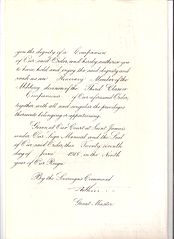 you the dignity of a Companion
of Our said Order, and hereby authorize you
to have hold and enjoy the said dignity and
rank as an Honorary Member of the
Military division of the Third Class or
Companions of Our aforesaid Order,
together with all and singular the privileges
thereunto belonging or appertaining.
Given at Our Court at Saint James's
under Our Sign Manual and the Seal
of Our said Order, this Twenty seventh
day of June 1918 in the Ninth
year of Our Reign.
By the Sovereign's Command
Grand Master